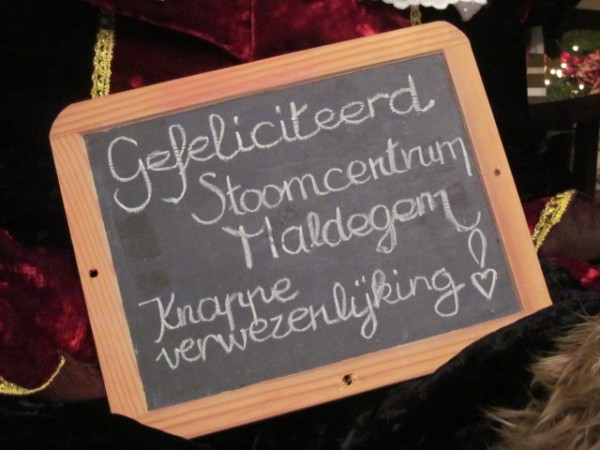 Gefeliciteerd
Stoomcentrum
Maldegem
Knappe
verwezenlijking!